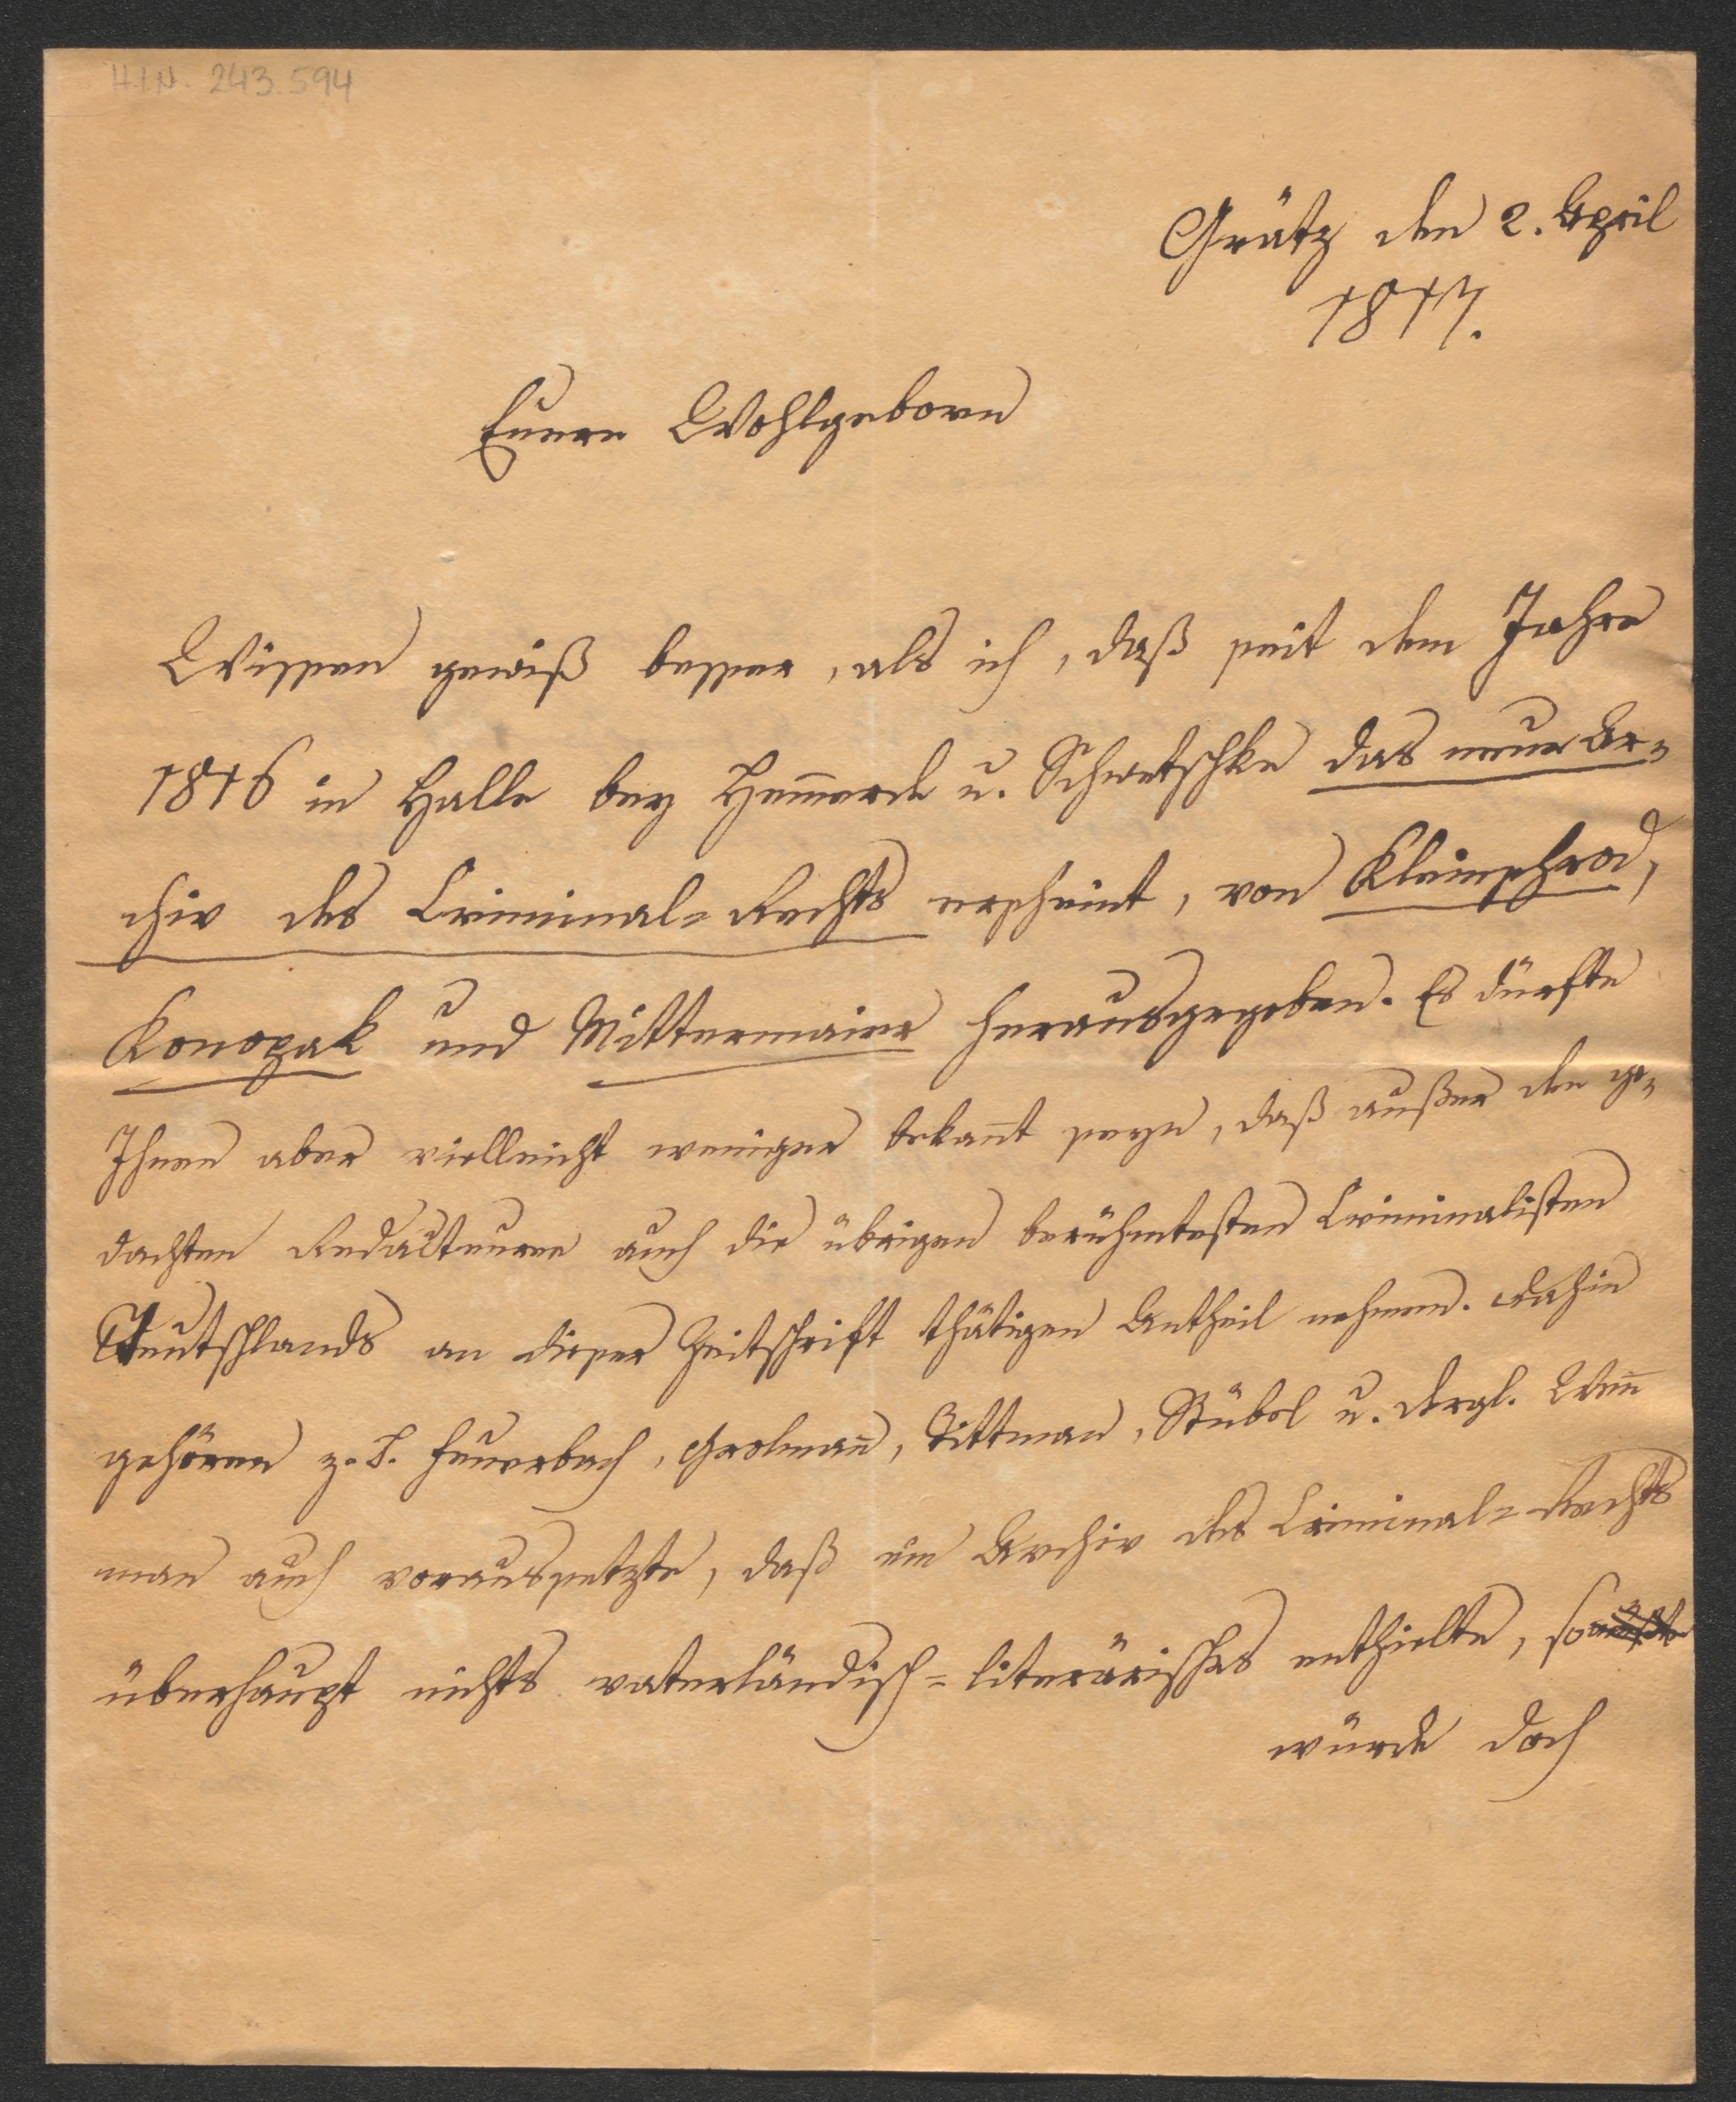 H.I.N. 243.594
Grätz den 2. April
1817.
Euere Wohlgeborn
Wissen gewiß besser, als ich, daß seit dem Jahre
1816 in Halle bey Hem̅erde u. Schwetschke das neue Ar-
chiv des Criminal-Rechts erscheint, von Kleinschrod,
Konopak und Mittermaier herausgegeben. Es dürfte
Ihnen aber vielleicht weniger bekan̅t seyn, daß außer den ge-
dachten Redacteuren auch die übrigen berühmtesten Criminalisten
Teutschlands an dieser Zeitschrift thätigen Antheil nehmen. Dahin
gehören z. B. Feuerbach, Grolman̅, Tittman, Stübel u. dergl. Wen̅
man auch voraussetzte, daß ein Archiv des Criminal-Rechts
überhaupt nichts vaterländisch-literärisches enthielte, so
würde doch